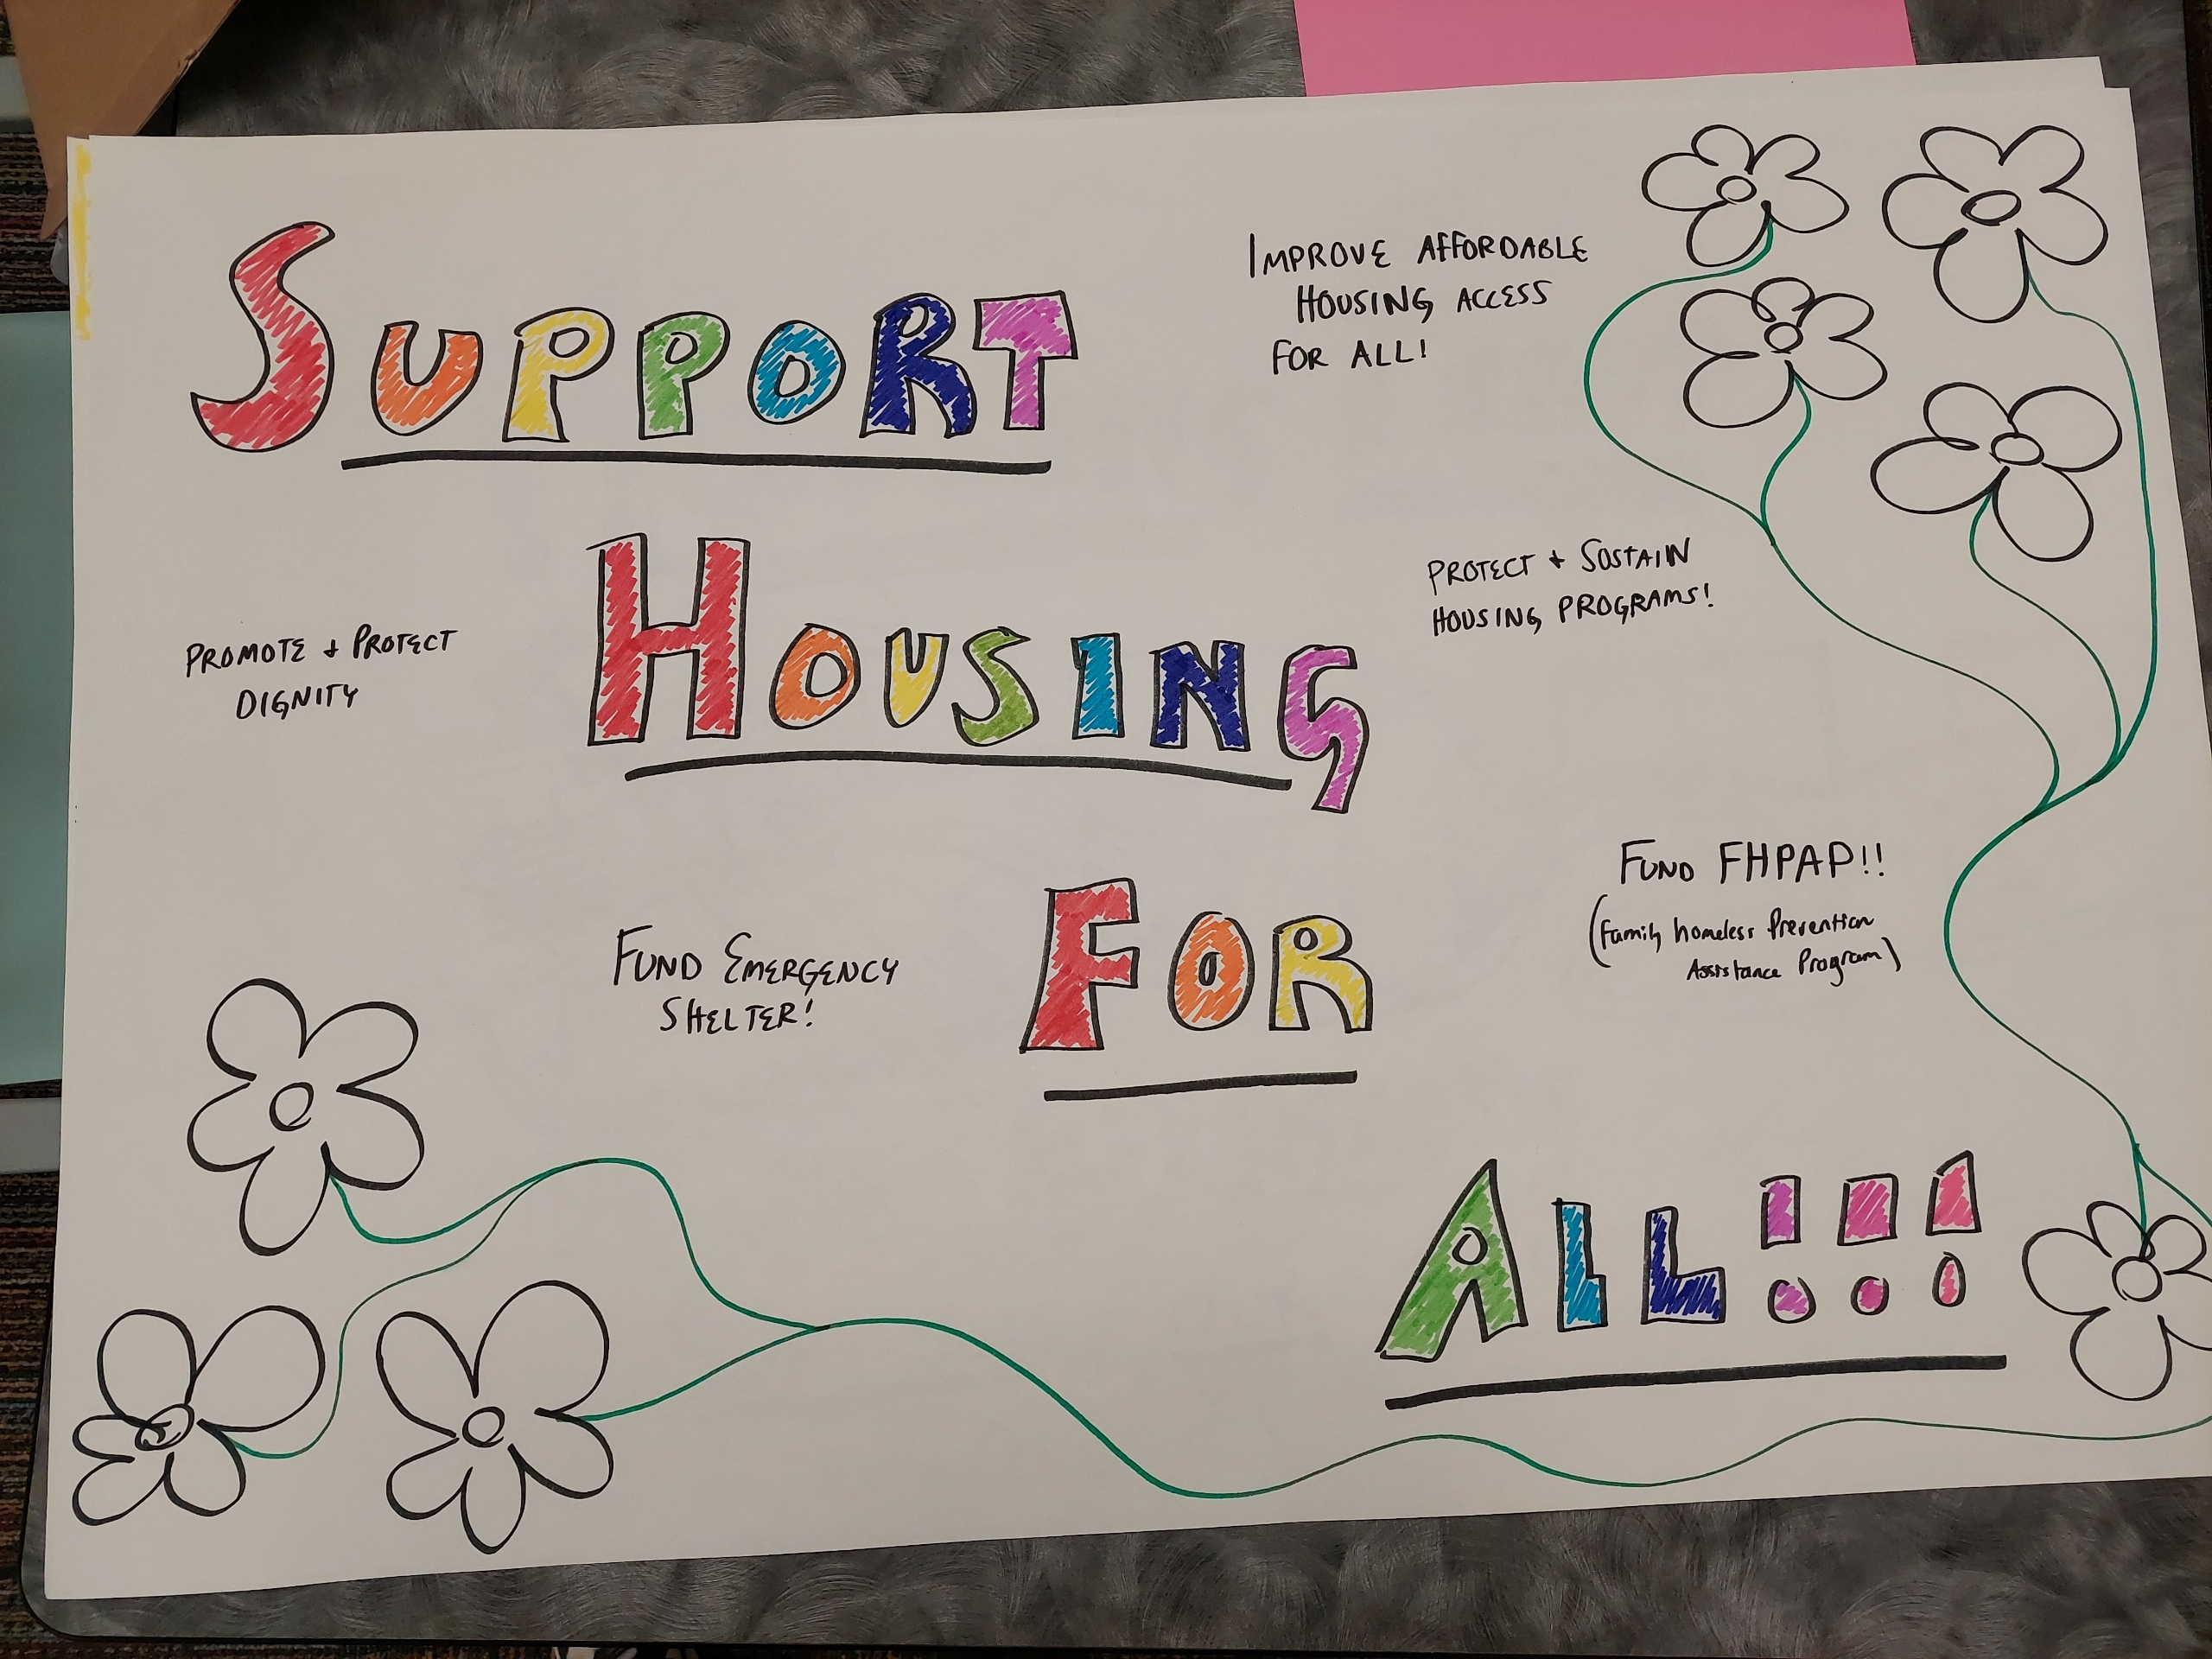 SUPPORT
IMPROVE AFFORDABLE
HOUSING ACCESS
FOR ALL!
HOUSING
PROTECT + SUSTAIN
HOUSING PROGRAMS!
PROMOTE + PROTECT
DIGNITY
FOR
FUND FHPAP!!
(Family homeless Prevention
Assistance Program)
FUND EMERGENCY
SHELTER!
ALL!!!